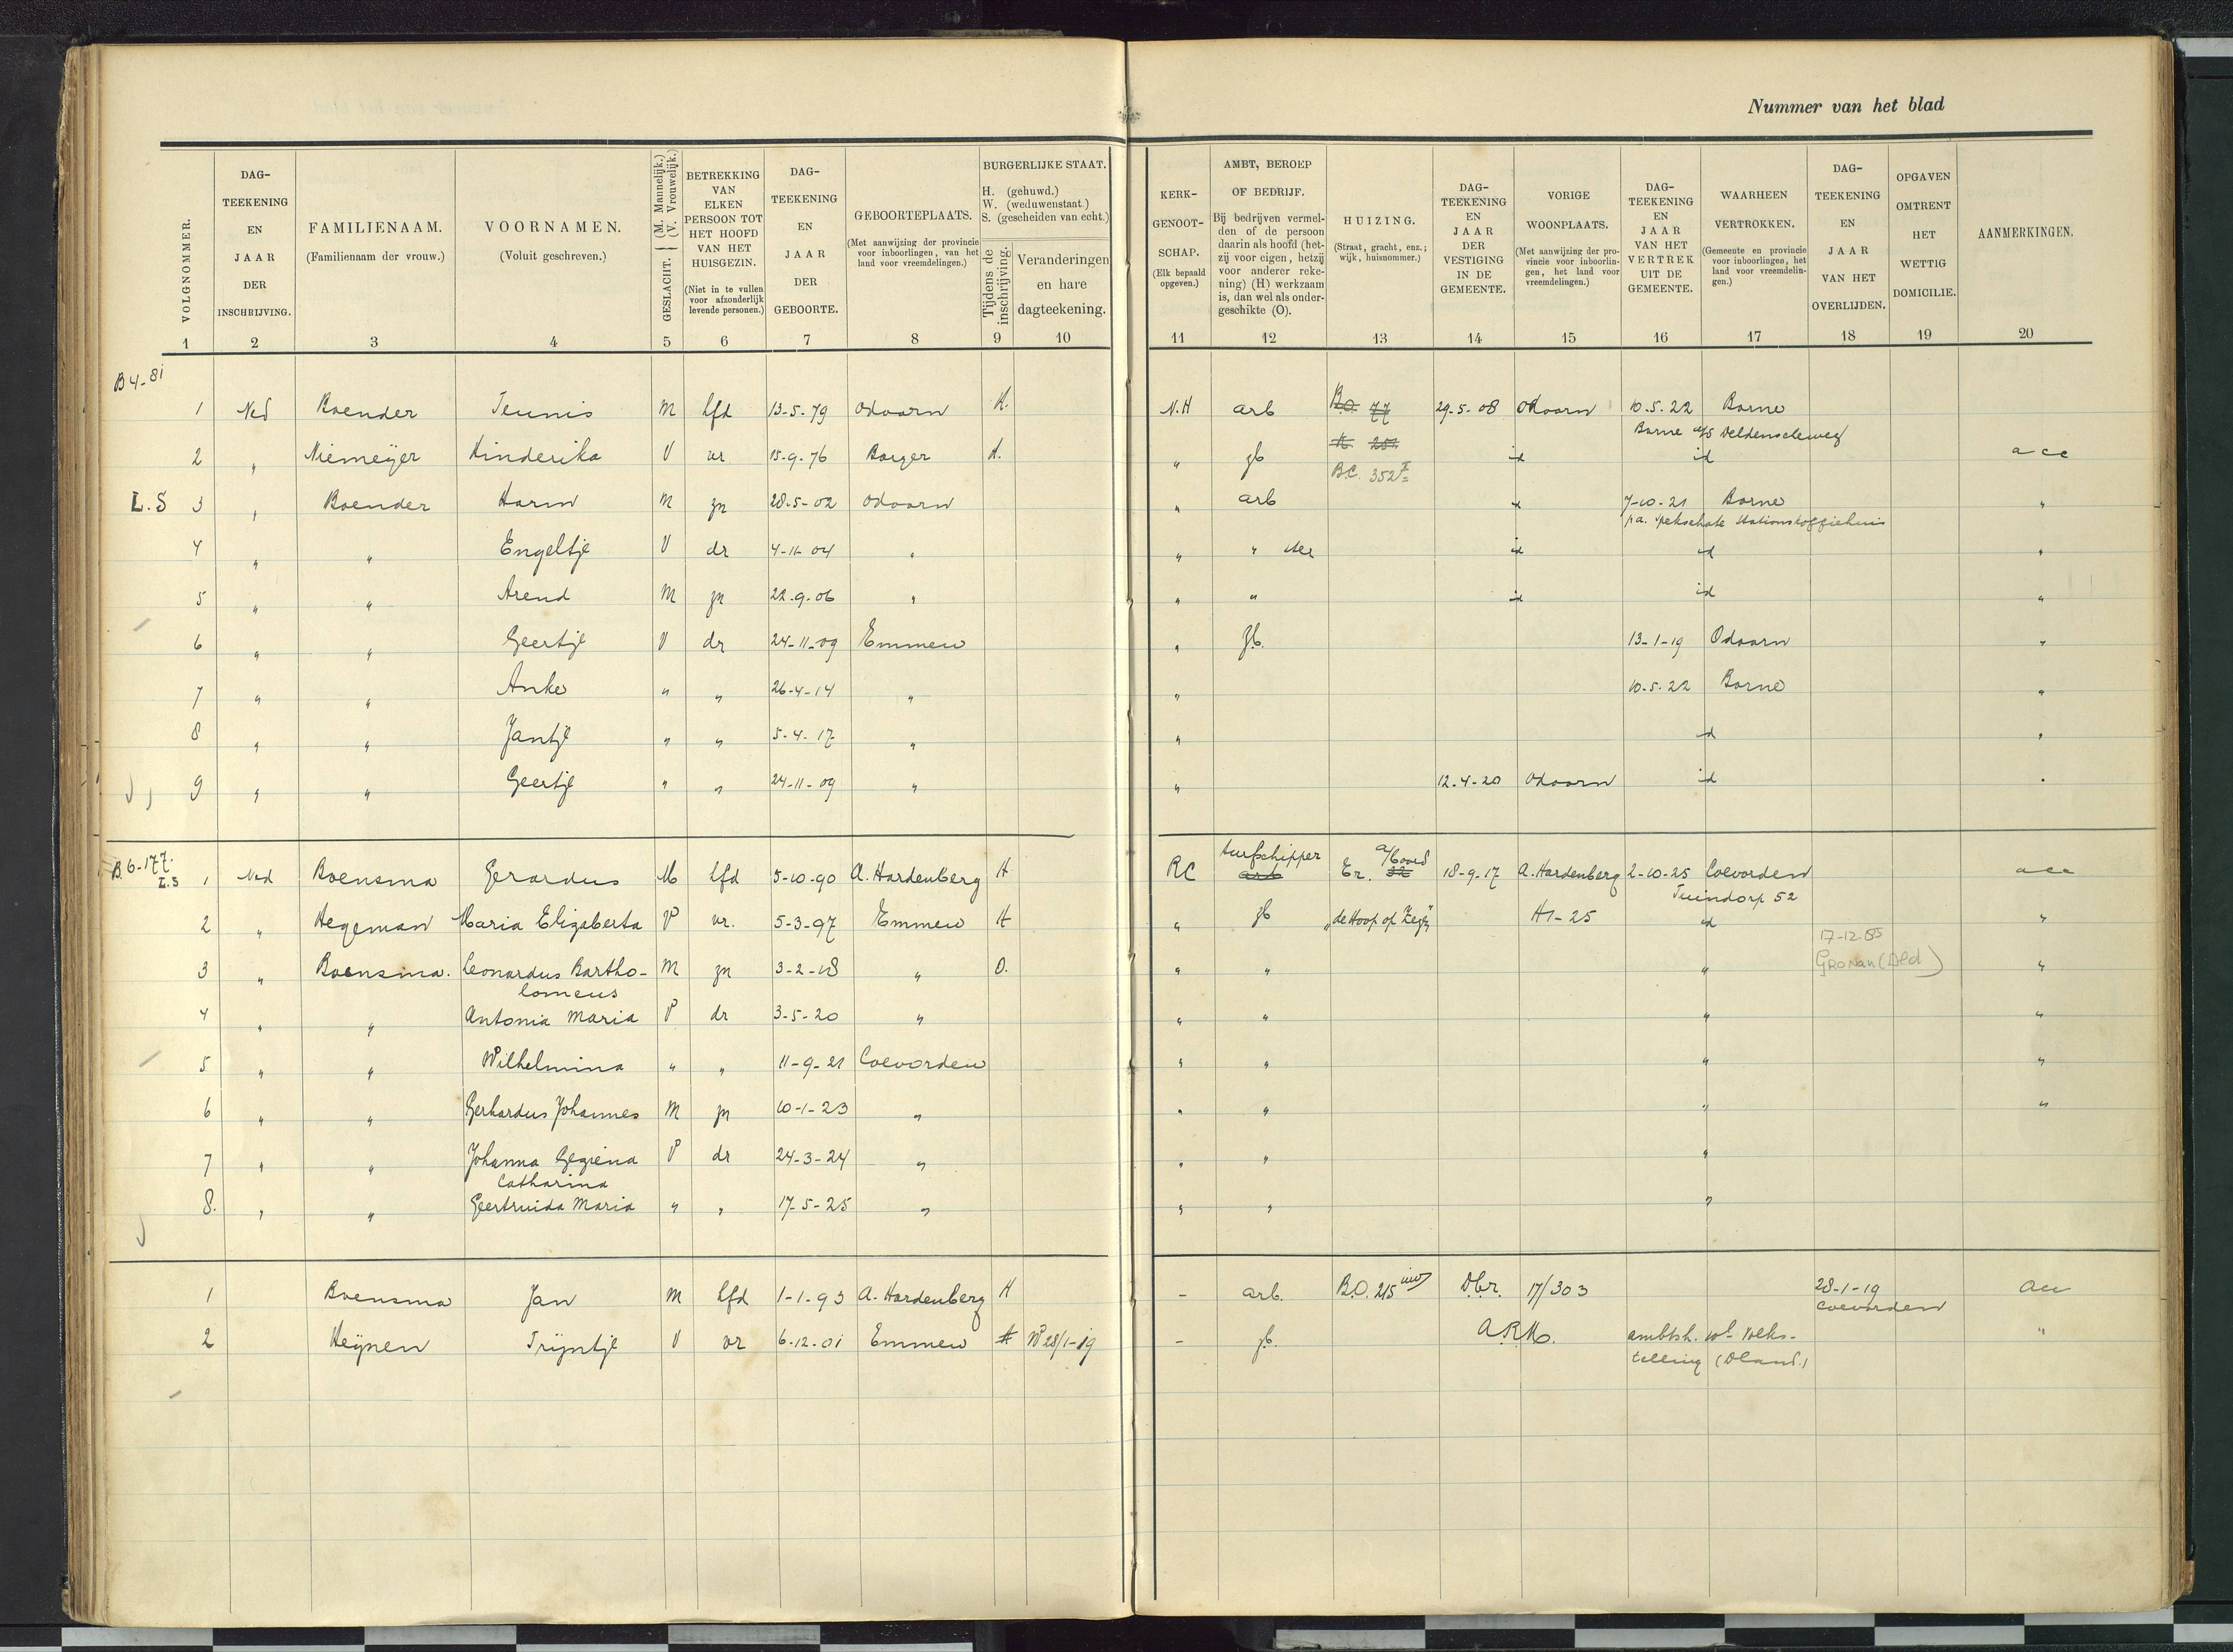 Nummer van het blad
VOLGNOMMER. 1
DAG-TEEKENING EN JAAR DER INSCHRIJVING. 2
FAMILIENAAM. (Familienaam der vrouw.) 3
VOORNAMEN. (Voluit geschreven.) 4
GESLACHT. (M. Mannelijk.) (V. Vrouwelijk.) 5
BETREKKING VAN ELKEN PERSOON TOT HET HOOFD VAN HET HUISGEZIN. (Niet in te vullen voor afzonderlijk levende personen.) 6
DAG-TEEKENING EN JAAR DER GEBOORTE. 7
GEBOORTEPLAATS. (Met aanwijzing der provincie voor inboorlingen, van het land voor vreemdelingen.) 8
BURGERLIJKE STAAT.
H. (gehuwd.)
W. (weduwenstaat.)
S. (gescheiden van echt.)
Tijdens de inschrijving. 9
Veranderingen en hare dagteekening. 10
KERK-GENOOT-SCHAP. (Elk bepaald opgeven.) 11
AMBT, BEROEP OF BEDRIJF. Bij bedrijven vermelden of de persoon daarin als hoofd (hetzij voor eigen, hetzij voor anderer rekening) (H) werkzaam is, dan wel als ondergeschikte (O). 12
HUIZING. (Straat, gracht, enz.; wijk, huisnommer.) 13
DAG-TEEKENING EN JAAR DER VESTIGING IN DE GEMEENTE. 14
VORIGE WOONPLAATS. (Met aanwijzing der provincie voor inboorlingen, het land voor vreemdelingen.) 15
DAG-TEEKENING EN JAAR VAN HET VERTREK UIT DE GEMEENTE. 16
WAARHEEN VERTROKKEN. (Gemeente en provincie voor inboorlingen, het land voor vreemdelingen.) 17
DAG-TEEKENING EN JAAR VAN HET OVERLIJDEN. 18
OPGAVEN OMTRENT HET WETTIG DOMICILIE. 19
AANMERKINGEN. 20
B4-81
1 Ned Boender Teunis M hfd 13-5-79 Odoorn H. N.H arb B.O. 77 29-5-08 Odoorn 10.5.22 Borne
Borne a/s Deldenscheweg
2 " Niemeijer Hinderika V vr 15-9-76 Borger H. " gb K 252 id id acc
B.C. 352 I
L.S 3 " Boender Harm M zn 28-5-02 Odoorn " arb id 7-10-21 Borne "
p.a. Spekschate Stationskoffiehuis
4 " " Engeltje V dr 4-11-04 " " " ster id id "
5 " " Arend M zn 22-9-06 " " " id id "
6 " " Geertje V dr 24-11-09 Emmen " gb. 13-1-19 Odoorn "
7 " " Anke " " 26-4-14 " " 10-5-22 Borne "
8 " " Jantje " " 5-4-17 " " id "
9 " " Geertje " " 24-11-09 " " 12-4-20 Odoorn id "
B.6-177.
L.S 1 Ned Boensma Gerardus M hfd 5-10-90 A. Hardenberg H RC turfschipper arb Er. 32 a/boord 18-9-17 A. Hardenberg 2-10-25 Coevorden acc
Tuindorp 52
2 " Hegeman Maria Elizaberta V vr. 5-3-97 Emmen H " gb "de Hoop op Zegen" H1-25 id "
17-12-85
3 " Boensma. Leonardus Bartho- M zn 3-2-18 " O. " " " Gronau (Dld) "
lomeus
4 " " Antonia Maria V dr 3-5-20 " " " " "
5 " " Wilhelmina " " 11-9-21 Coevorden " " " "
6 " " Gerhardus Johannes M zn 10-1-23 " " " " "
7 " " Johanna Gezina V dr 24-3-24 " " " "
Catharina
8. " " Geertruida Maria " " 17-5-25 " " " "
1 Boensma Jan M hfd 1-1-93 A. Hardenberg H - arb. B.O. 215 inw Dbr. 17/303 28-1-19 acc
Coevorden
2 Heijnen Trijntje V vr 6-12-01 Emmen H W 28/1-19 - gb. A.R.Mo. ambtsh. vol. volks- "
telling (Dland.)